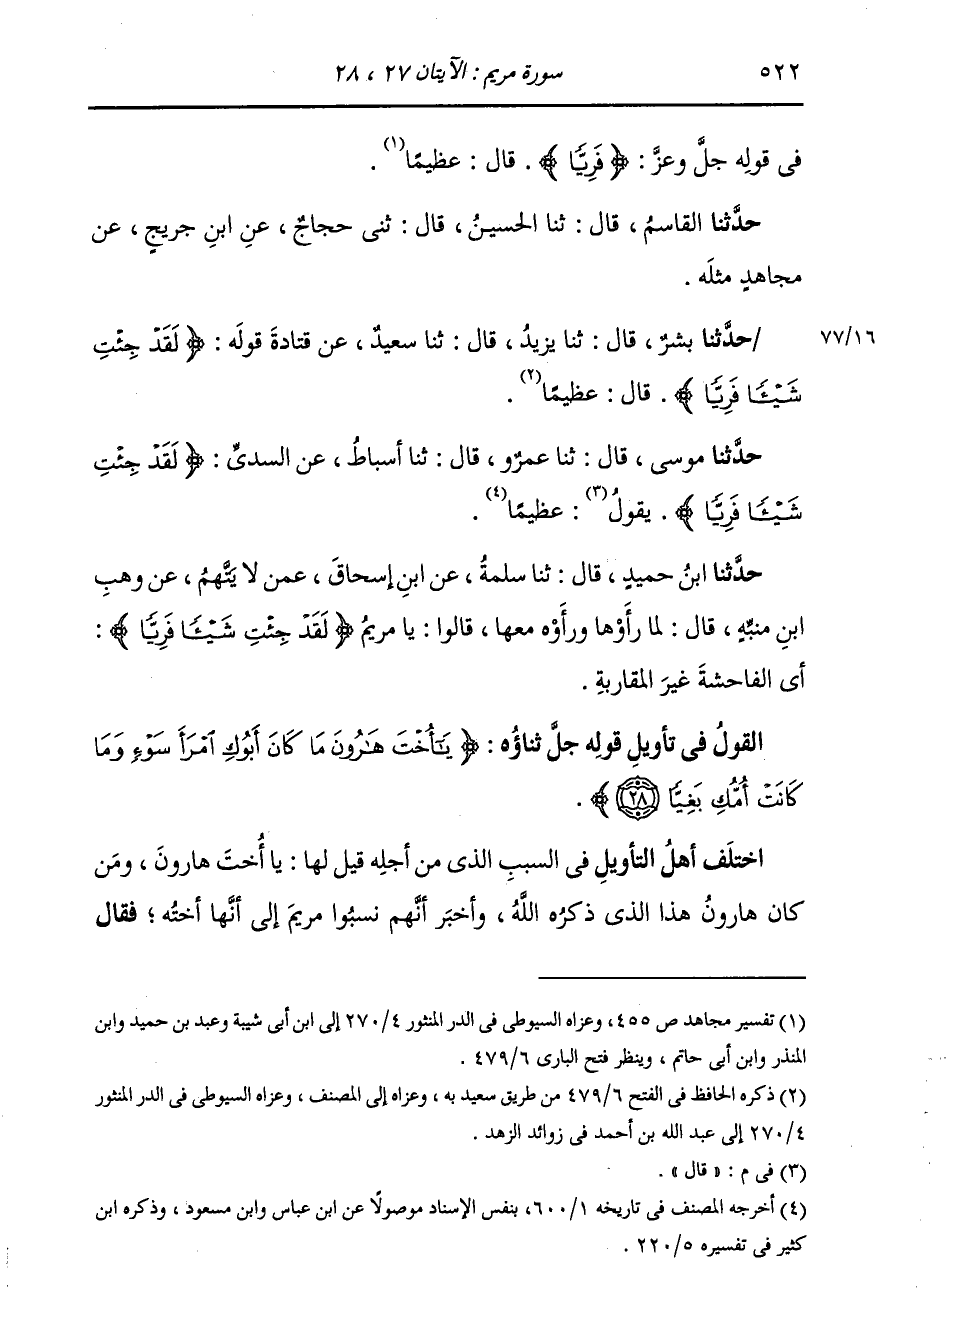 ٥٢٢
سورة مريم : الآيتان ٢٧ ، ٢٨
فى قولِه جلَّ وعزَّ : ﴿ فَرِيًّا ﴾ . قال : عظيمًا(١) .
حدَّثنا القاسمُ ، قال : ثنا الحسينُ ، قال : ثنى حجاجٌ ، عنِ ابنِ جريجٍ ، عن
مجاهدٍ مثلَه .
١٦/٧٧
/حدَّثنا بشرٌ ، قال : ثنا يزيدُ ، قال : ثنا سعيدٌ ، عن قتادةَ قولَه : ﴿ لَقَدْ جِئْتِ
شَيْـًٔا فَرِيًّا ﴾ . قال : عظيمًا(٢) .
حدَّثنا موسى ، قال : ثنا عمرٌو ، قال : ثنا أسباطُ ، عن السدىِّ : ﴿ لَقَدْ جِئْتِ
شَيْـًٔا فَرِيًّا ﴾ . يقولُ(٣) : عظيمًا(٤) .
حدَّثنا ابنُ حميدٍ ، قال : ثنا سلمةُ ، عن ابنِ إسحاقَ ، عمن لا يَتَّهمُ ، عن وهبِ
ابنِ منبِّهٍ ، قال : لما رأَوْها ورأَوْه معها ، قالوا : يا مريمُ ﴿ لَقَدْ جِئْتِ شَيْـًٔا فَرِيًّا ﴾ :
أى الفاحشةَ غيرَ المقاربةِ .
القولُ فى تأويلِ قولِه جلَّ ثناؤُه : ﴿ يَـٰٓأُخْتَ هَـٰرُونَ مَا كَانَ أَبُوكِ ٱمْرَأَ سَوْءٍ وَمَا
كَانَتْ أُمُّكِ بَغِيًّا ٢٨ ﴾ .
اختلَف أهلُ التأويلِ فى السببِ الذى من أجلِه قيل لها : يا أُختَ هارونَ ، ومَن
كان هارونُ هذا الذى ذكرَه اللَّهُ ، وأخبَر أنَّهم نسبُوا مريمَ إلى أنَّها أختُه ؛ فقال
(١) تفسير مجاهد ص ٤٥٥، وعزاه السيوطى فى الدر المنثور ٢٧٠/٤ إلى ابن أبى شيبة وعبد بن حميد وابن
المنذر وابن أبى حاتم ، وينظر فتح البارى ٤٧٩/٦ .
(٢) ذكره الحافظ فى الفتح ٤٧٩/٦ من طريق سعيد به ، وعزاه إلى المصنف ، وعزاه السيوطى فى الدر المنثور
٢٧٠/٤ إلى عبد الله بن أحمد فى زوائد الزهد .
(٣) فى م : « قال » .
(٤) أخرجه المصنف فى تاريخه ٦٠٠/١، بنفس الإسناد موصولًا عن ابن عباس وابن مسعود ، وذكره ابن
كثير فى تفسيره ٢٢٠/٥ .